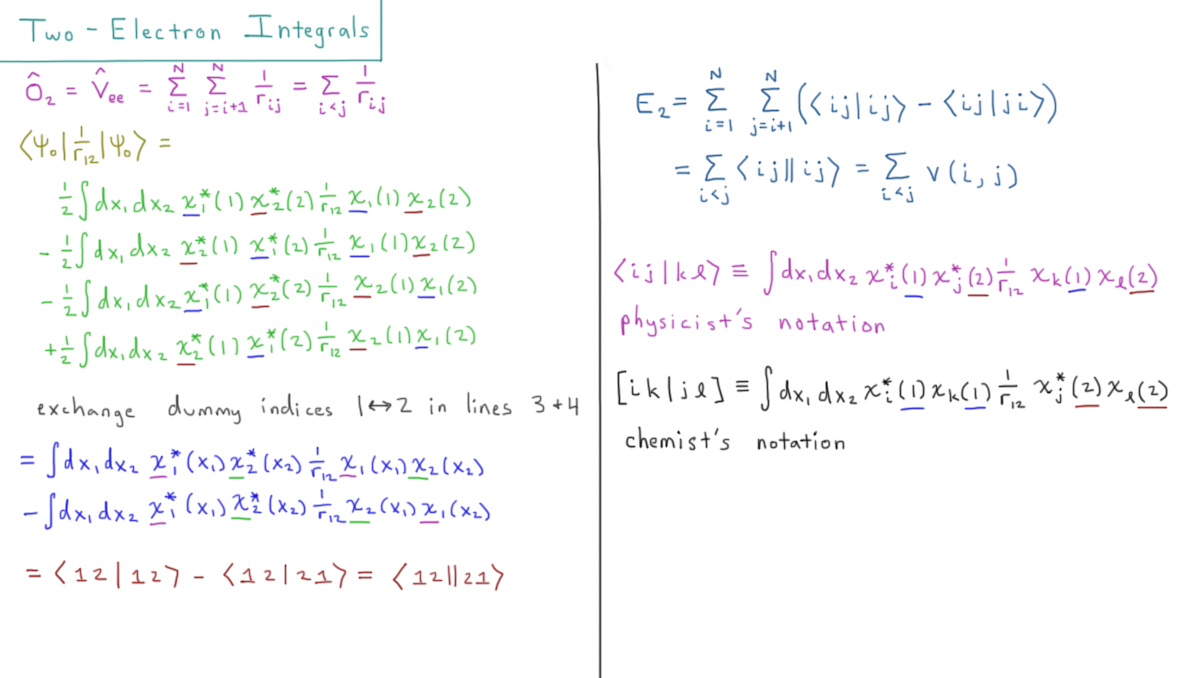 Two - Electron Integrals
Ô₂ = V̂ₑₑ = Σ_{i=1}^{N} Σ_{j=i+1}^{N} 1/r_{ij} = Σ_{i<j} 1/r_{ij}
⟨Ψ₀|1/r₁₂|Ψ₀⟩ =
1/2 ∫dx₁dx₂ χ₁*(1) χ₂*(2) 1/r₁₂ χ₁(1) χ₂(2)
- 1/2 ∫dx₁dx₂ χ₂*(1) χ₁*(2) 1/r₁₂ χ₁(1) χ₂(2)
- 1/2 ∫dx₁dx₂ χ₁*(1) χ₂*(2) 1/r₁₂ χ₂(1) χ₁(2)
+ 1/2 ∫dx₁dx₂ χ₂*(1) χ₁*(2) 1/r₁₂ χ₂(1) χ₁(2)
exchange dummy indices 1↔2 in lines 3+4
= ∫dx₁dx₂ χ₁*(x₁) χ₂*(x₂) 1/r₁₂ χ₁(x₁) χ₂(x₂)
- ∫dx₁dx₂ χ₁*(x₁) χ₂*(x₂) 1/r₁₂ χ₂(x₁) χ₁(x₂)
= ⟨12|12⟩ - ⟨12|21⟩ = ⟨12||21⟩
E₂ = Σ_{i=1}^{N} Σ_{j=i+1}^{N} (⟨ij|ij⟩ - ⟨ij|ji⟩)
= Σ_{i<j} ⟨ij||ij⟩ = Σ_{i<j} v(i,j)
⟨ij|kl⟩ ≡ ∫dx₁dx₂ χᵢ*(1) χⱼ*(2) 1/r₁₂ χₖ(1) χₗ(2)
physicist's notation
[ik|jl] ≡ ∫dx₁dx₂ χᵢ*(1) χₖ(1) 1/r₁₂ χⱼ*(2) χₗ(2)
chemist's notation